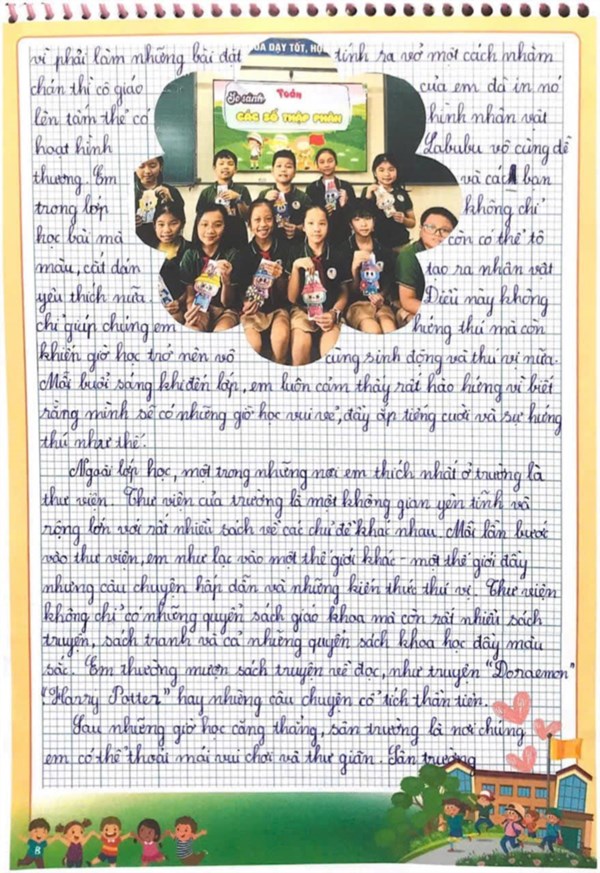 ĐUA DẠY TỐT, HỌ
So sánh
Toán
CÁC SỐ THẬP PHÂN
vì phải làm những bài đặt tính ra vở một cách nhàm
chán thì cô giáo của em đã in nó
lên tấm thẻ có hình nhân vật
hoạt hình Labubu vô cùng dễ
thương. Em và các bạn
trong lớp không chỉ
học bài mà còn có thể tô
màu, cắt dán tạo ra nhân vật
yêu thích nữa. Điều này không
chỉ giúp chúng em hứng thú mà còn
khiến giờ học trở nên vô cùng sinh động và thú vị nữa.
Mỗi buổi sáng khi đến lớp, em luôn cảm thấy rất hào hứng vì biết
rằng mình sẽ có những giờ học vui vẻ, đầy ắp tiếng cười và sự hứng
thú như thế.
Ngoài lớp học, một trong những nơi em thích nhất ở trường là
thư viện. Thư viện của trường là một không gian yên tĩnh và
rộng lớn với rất nhiều sách về các chủ đề khác nhau. Mỗi lần bước
vào thư viện, em như lạc vào một thế giới khác - một thế giới đầy
những câu chuyện hấp dẫn và những kiến thức thú vị. Thư viện
không chỉ có những quyển sách giáo khoa mà còn rất nhiều sách
truyện, sách tranh và cả những quyển sách khoa học đầy màu
sắc. Em thường mượn sách truyện về đọc, như truyện "Doraemon"
"Harry Potter" hay những câu chuyện cổ tích thần tiên.
Sau những giờ học căng thẳng, sân trường là nơi chúng
em có thể thoải mái vui chơi và thư giãn. Sân trường
B